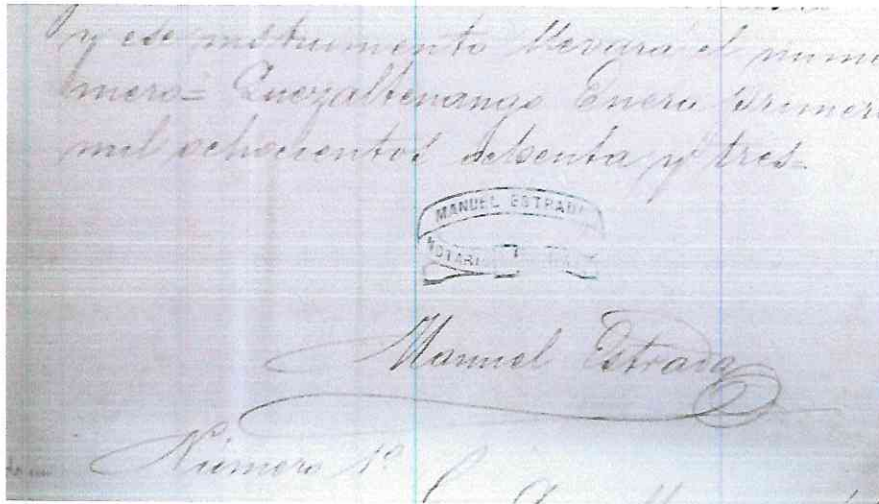 y ese instrumento llevará el
mero= Quezaltenango Enero primero
mil ochocientos ochenta y tres=
MANUEL ESTRADA
NOTARI
Manuel Estrada
Número 1º